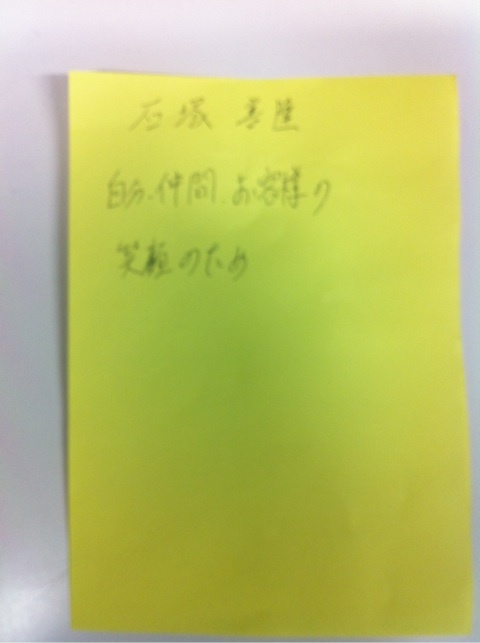 石塚
自分、仲間、お客様の
笑顔のため